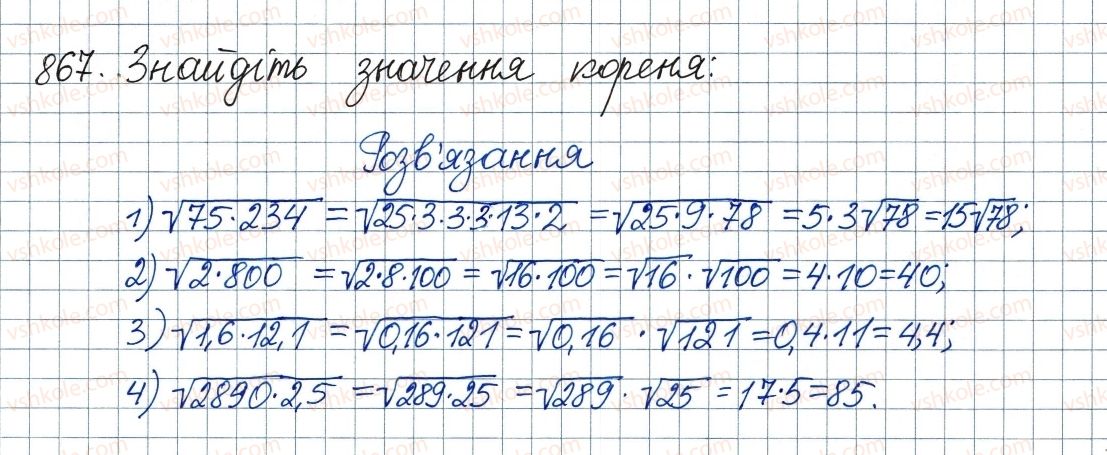 867. Знайдіть значення кореня:
Розв'язання
1) √75·234 = √25·3·3·3·13·2 = √25·9·78 = 5·3√78 = 15√78;
2) √2·800 = √2·8·100 = √16·100 = √16·√100 = 4·10 = 40;
3) √1,6·12,1 = √0,16·121 = √0,16·√121 = 0,4·11 = 4,4;
4) √2890·2,5 = √289·25 = √289·√25 = 17·5 = 85.